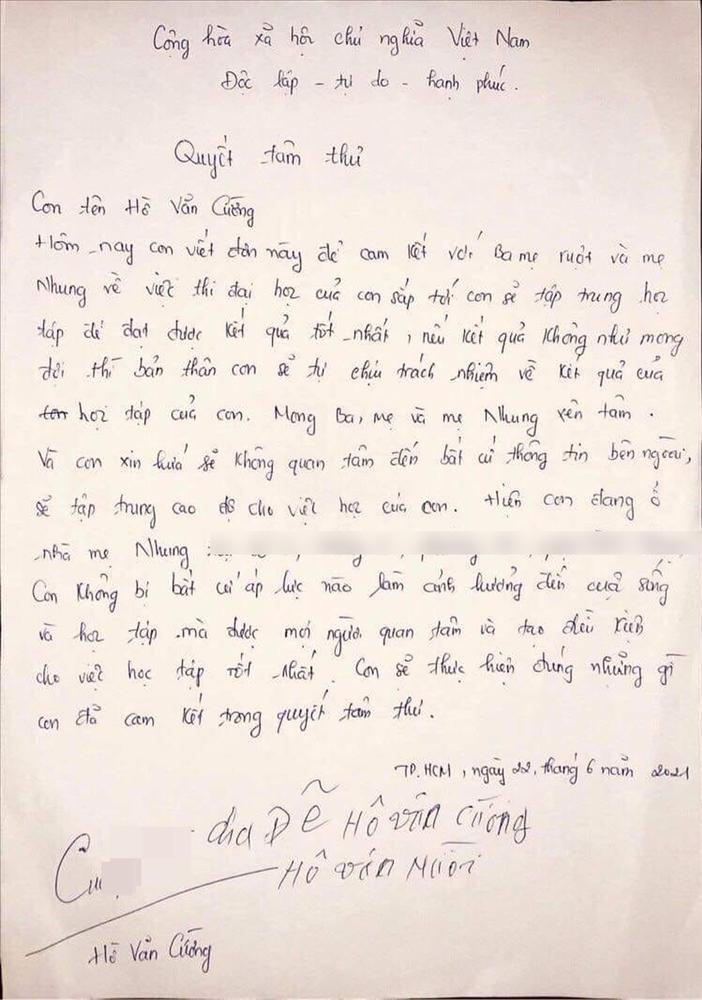 Cộng hòa xã hội chủ nghĩa Việt Nam
Độc lập - tự do - hạnh phúc.
Quyết tâm thư
Con tên Hồ Văn Cường
Hôm nay con viết đơn này để cam kết với Ba mẹ ruột và mẹ
Nhung về việc thi đại học của con sắp tới con sẽ tập trung học
tập để đạt được kết quả tốt nhất, nếu kết quả không như mong
đợi thì bản thân con sẽ tự chịu trách nhiệm về kết quả của
học tập của con. Mong Ba, mẹ và mẹ Nhung yên tâm.
Và con xin hứa sẽ không quan tâm đến bất cứ thông tin bên ngoài,
sẽ tập trung cao độ cho việc học của con. Hiện con đang ở
nhà mẹ Nhung
Con không bị bất cứ áp lực nào làm ảnh hưởng đến cuộ sống
và học tập mà được mọi người quan tâm và tạo điều kiện
cho việc học tập tốt nhất. Con sẽ thực hiện đúng những gì
con đã cam kết trong quyết tâm thư.
TP.HCM, ngày 22, tháng 6 năm 2021
cha Đẽ Hô văn Cường
Hô văn Mười
Hồ Văn Cường